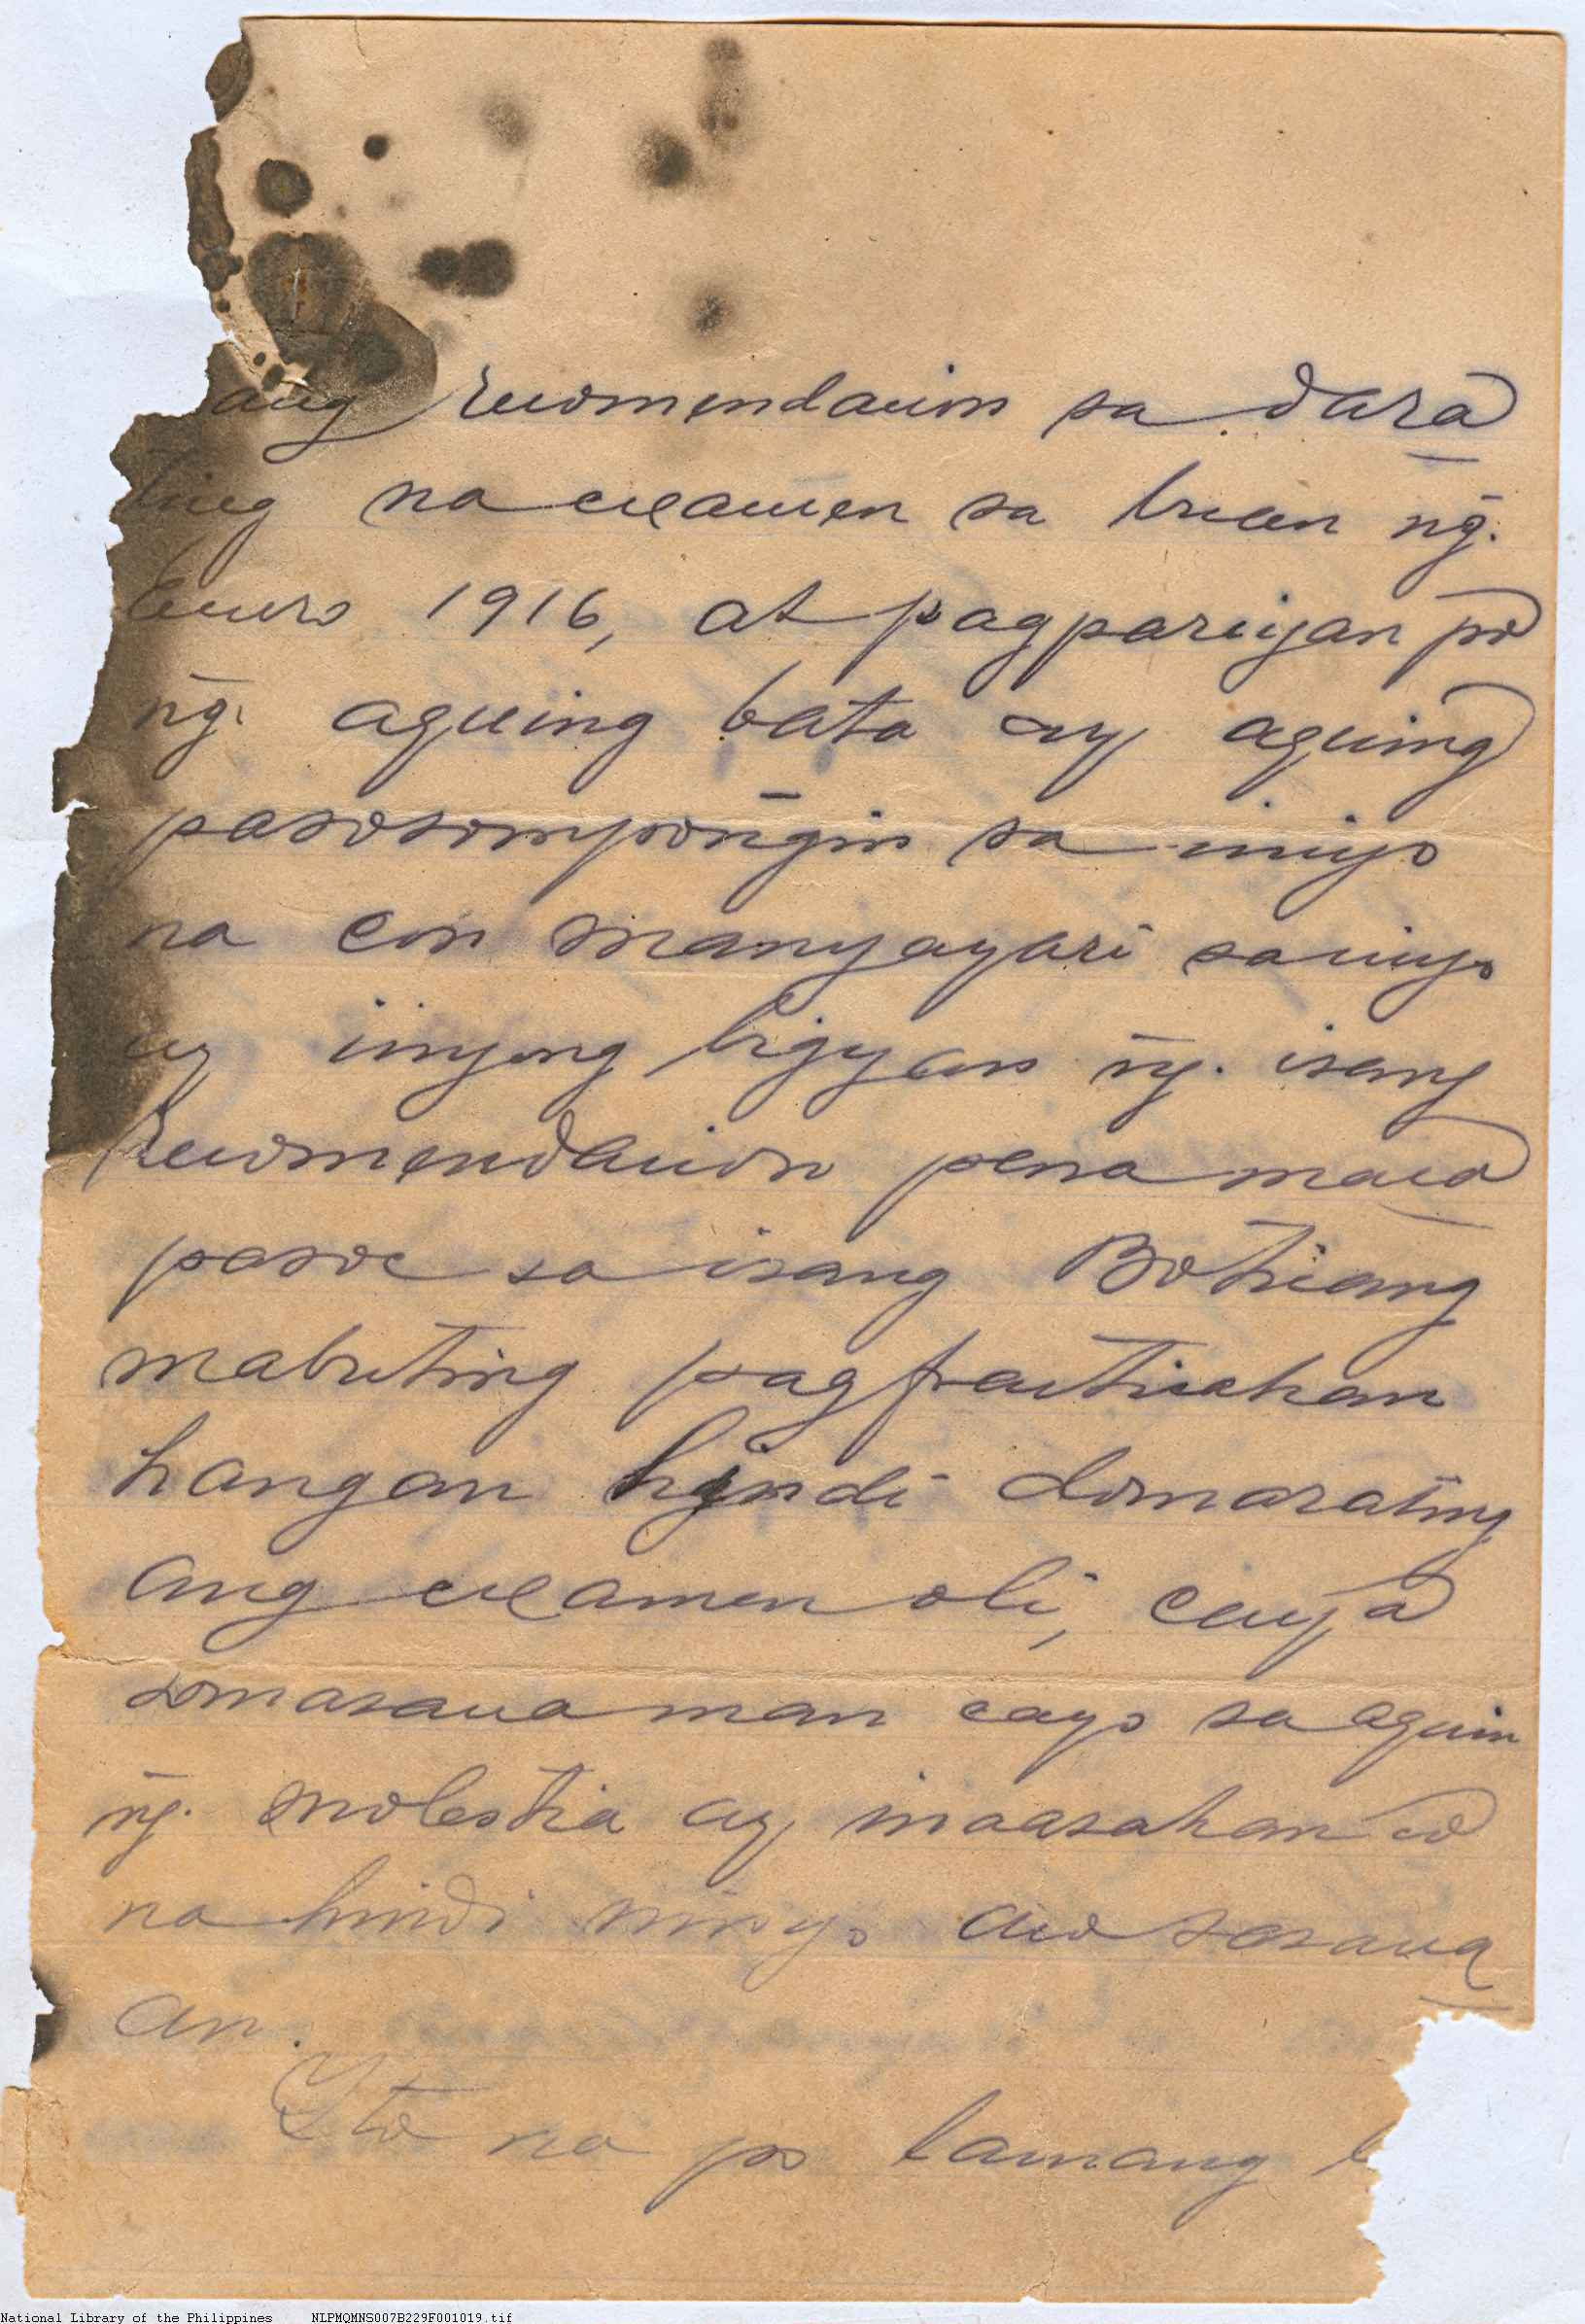 ang recomendacion sa dara
ting na examen sa buan ng̃.
Enero 1916, at pagpariyan po
ng̃. aquing bata ay aquing
pasosompong̃in sa iniyo
na con mangyayari sa iniyo
ay inyong bigyan ng̃. isang
Recomendacion para maca
pasoc sa isang Boticang
mabuting pagpracticahan
hangan hindi domarating
ang examen oli, caya
somasaua man cayo sa aquin
ng̃. molestia ay inaasahan co
na hindi ninyo aco sasaua
an.
Ito na po lamang
National Library of the Philippines NLPMQMNS007B229F001019.tif